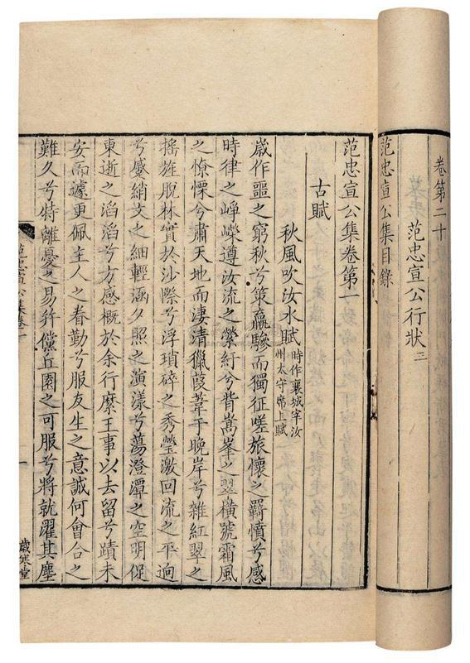 卷第二十
范忠宣公行狀二
范忠宣公集目錄
范忠宣公集卷第一
古賦
秋風吹汝水賦 時作襄城宰汝
州太守席上賦
歲作噩之窮秋兮策羸驂而獨征嗟旅懷之羈憤兮感
時律之崢嶸遵汝流之縈紆兮背嵩峯之翠橫號霜風
之憭慄兮肅天地而淒清獵葭葦于晚岸兮雜紅翠之
搖旌脫林實於沙際兮浮瑣碎之秀瑩激回流之平逈
兮蹙綃文之細輕涵夕照之演漾兮蕩澄潭之空明促
東逝之滔滔兮方感概於余行縻王事以去留兮蹟未
安而遽更佩主人之眷勤兮服友生之意誠何會合之
難久兮特離憂之易幷儻丘園之可服兮將就濯其塵
范忠宣公集卷一
一
歲寒堂